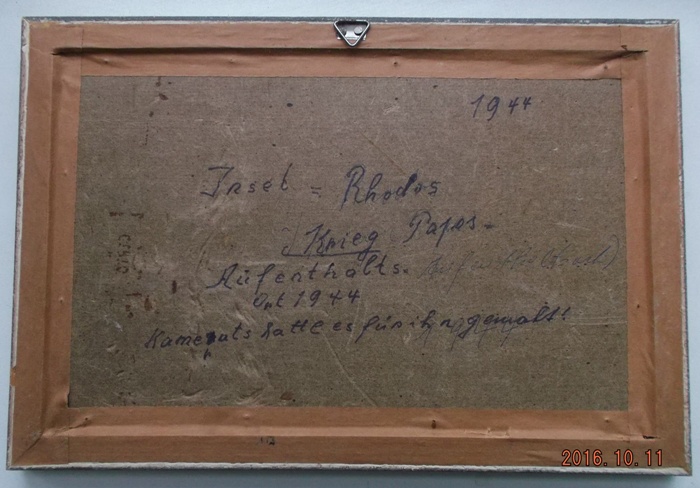 1944
Insel = Rhodos
Krieg Papas.
Aufenthalts.
Ort 1944
Kamerats hatte es für ihn gemalt!
2016.10.11